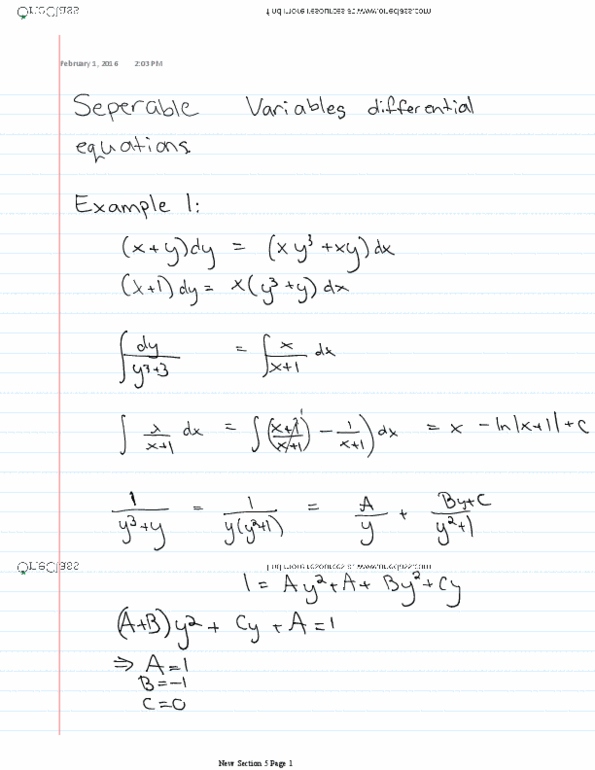 OneClass
Find more resources at www.oneclass.com
February 1, 2016 2:03 PM
Seperable Variables differential
equations
Example 1:
(x+y)dy = (xy³+xy)dx
(x+1)dy = x(y³+y)dx
∫ dy/(y³+3) = ∫ x/(x+1) dx
∫ x/(x+1) dx = ∫((x+1)/(x+1) - 1/(x+1))dx = x - ln|x+1| + c
1/(y³+y) = 1/(y(y²+1)) = A/y + (By+C)/(y²+1)
OneClass
Find more resources at www.oneclass.com
1 = Ay²+A+By²+Cy
(A+B)y² + Cy + A = 1
⇒ A=1
B=-1
C=0
New Section 5 Page 1